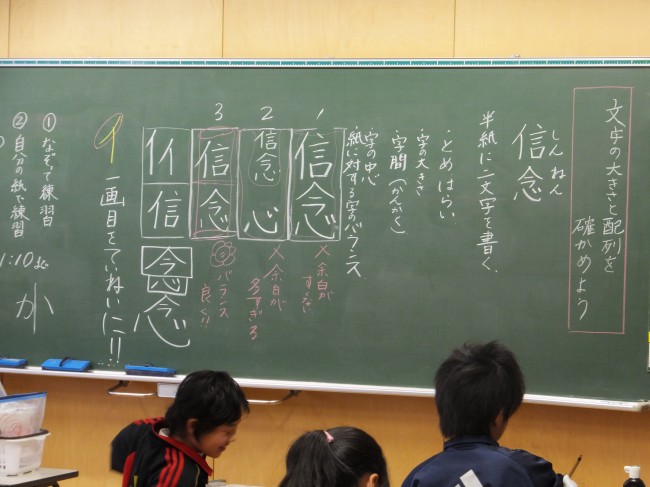 文字の大きさと配列を
確かめよう
しんねん
信念
半紙に二文字を書く。
・とめはらい
・字の大きさ
・字間(かんかく)
・字の中心
・紙に対する字のバランス
1
信念
×余白が
すくない
2
信念
心
×余白が
多すぎる
3
信念
バランス
良く!!
イ
信
念
念
イ
一画目をていねいに!!
①なぞって練習
②自分の紙で練習
1:10まで
か